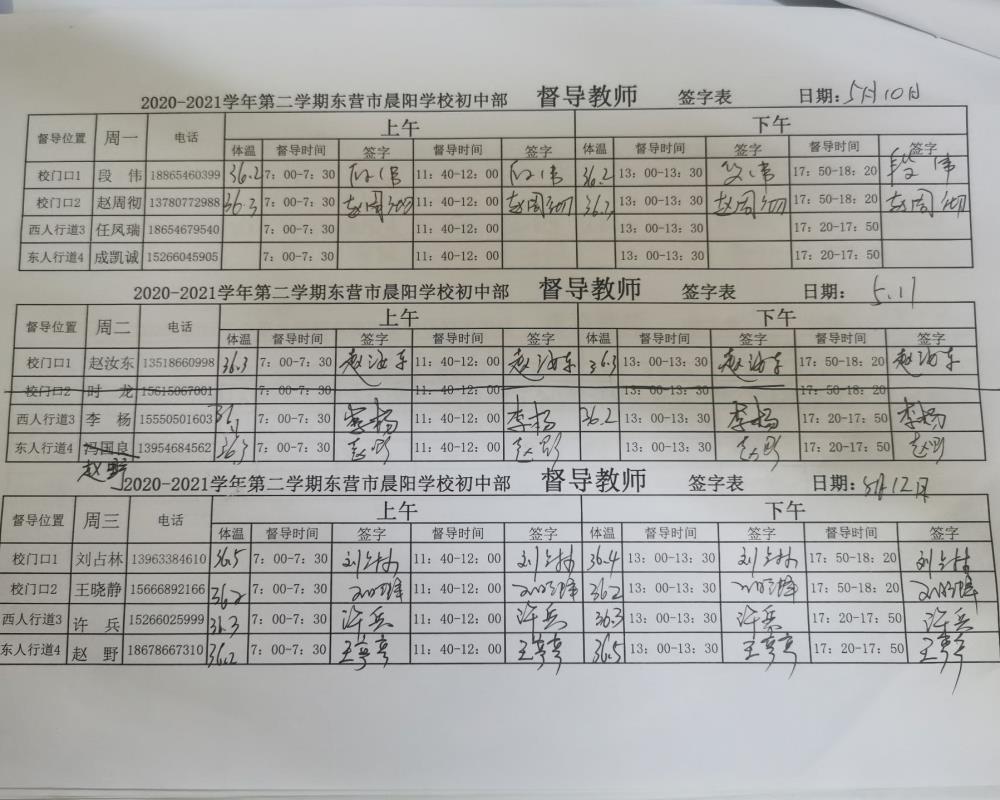 2020-2021学年第二学期东营市晨阳学校初中部 督导教师 签字表 日期: 5月10日
督导位置 周一 电话 上午 下午
体温 督导时间 签字 督导时间 签字 体温 督导时间 签字 督导时间 签字
校门口1 段 伟 18865460399 36.2 7: 00-7: 30 段伟 11: 40-12: 00 段伟 36.2 13: 00-13: 30 段伟 17: 50-18: 20 段伟
校门口2 赵周彻 13780772988 36.3 7: 00-7: 30 赵周彻 11: 40-12: 00 赵周彻 36.3 13: 00-13: 30 赵周彻 17: 50-18: 20 赵周彻
西人行道3 任凤瑞 18654679540 7: 00-7: 30 11: 40-12: 00 13: 00-13: 30 17: 20-17: 50
东人行道4 成凯诚 15266045905 7: 00-7: 30 11: 40-12: 00 13: 00-13: 30 17: 20-17: 50
2020-2021学年第二学期东营市晨阳学校初中部 督导教师 签字表 日期: 5.11
督导位置 周二 电话 上午 下午
体温 督导时间 签字 督导时间 签字 体温 督导时间 签字 督导时间 签字
校门口1 赵汝东 13518660998 36.3 7: 00-7: 30 赵汝东 11: 40-12: 00 赵汝东 36.3 13: 00-13: 30 赵汝东 17: 50-18: 20 赵汝东
校门口2 时 龙 15615067001 7: 00-7: 30 11: 40-12: 00 13: 00-13: 30 17: 50-18: 20
西人行道3 李 杨 15550501603 7: 00-7: 30 李杨 11: 40-12: 00 李杨 36.2 13: 00-13: 30 李杨 17: 20-17: 50 李杨
东人行道4 冯国良 13954684562 36.3 7: 00-7: 30 11: 40-12: 00 13: 00-13: 30 17: 20-17: 50
赵野
2020-2021学年第二学期东营市晨阳学校初中部 督导教师 签字表 日期: 5月12日
督导位置 周三 电话 上午 下午
体温 督导时间 签字 督导时间 签字 体温 督导时间 签字 督导时间 签字
校门口1 刘占林 13963384610 36.5 7: 00-7: 30 刘占林 11: 40-12: 00 刘占林 36.4 13: 00-13: 30 刘占林 17: 50-18: 20 刘占林
校门口2 王晓静 15666892166 36.2 7: 00-7: 30 11: 40-12: 00 36.2 13: 00-13: 30 17: 50-18: 20
西人行道3 许 兵 15266025999 36.3 7: 00-7: 30 许兵 11: 40-12: 00 许兵 36.3 13: 00-13: 30 许兵 17: 20-17: 50 许兵
东人行道4 赵 野 18678667310 36.2 7: 00-7: 30 王亭亭 11: 40-12: 00 王亭亭 36.5 13: 00-13: 30 王亭亭 17: 20-17: 50 王亭亭